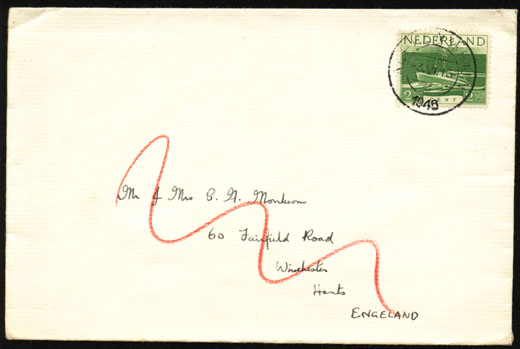 NEDERLAND
1945
Mr & Mrs
60 Fairfield Road
Winchester
Hants
ENGELAND